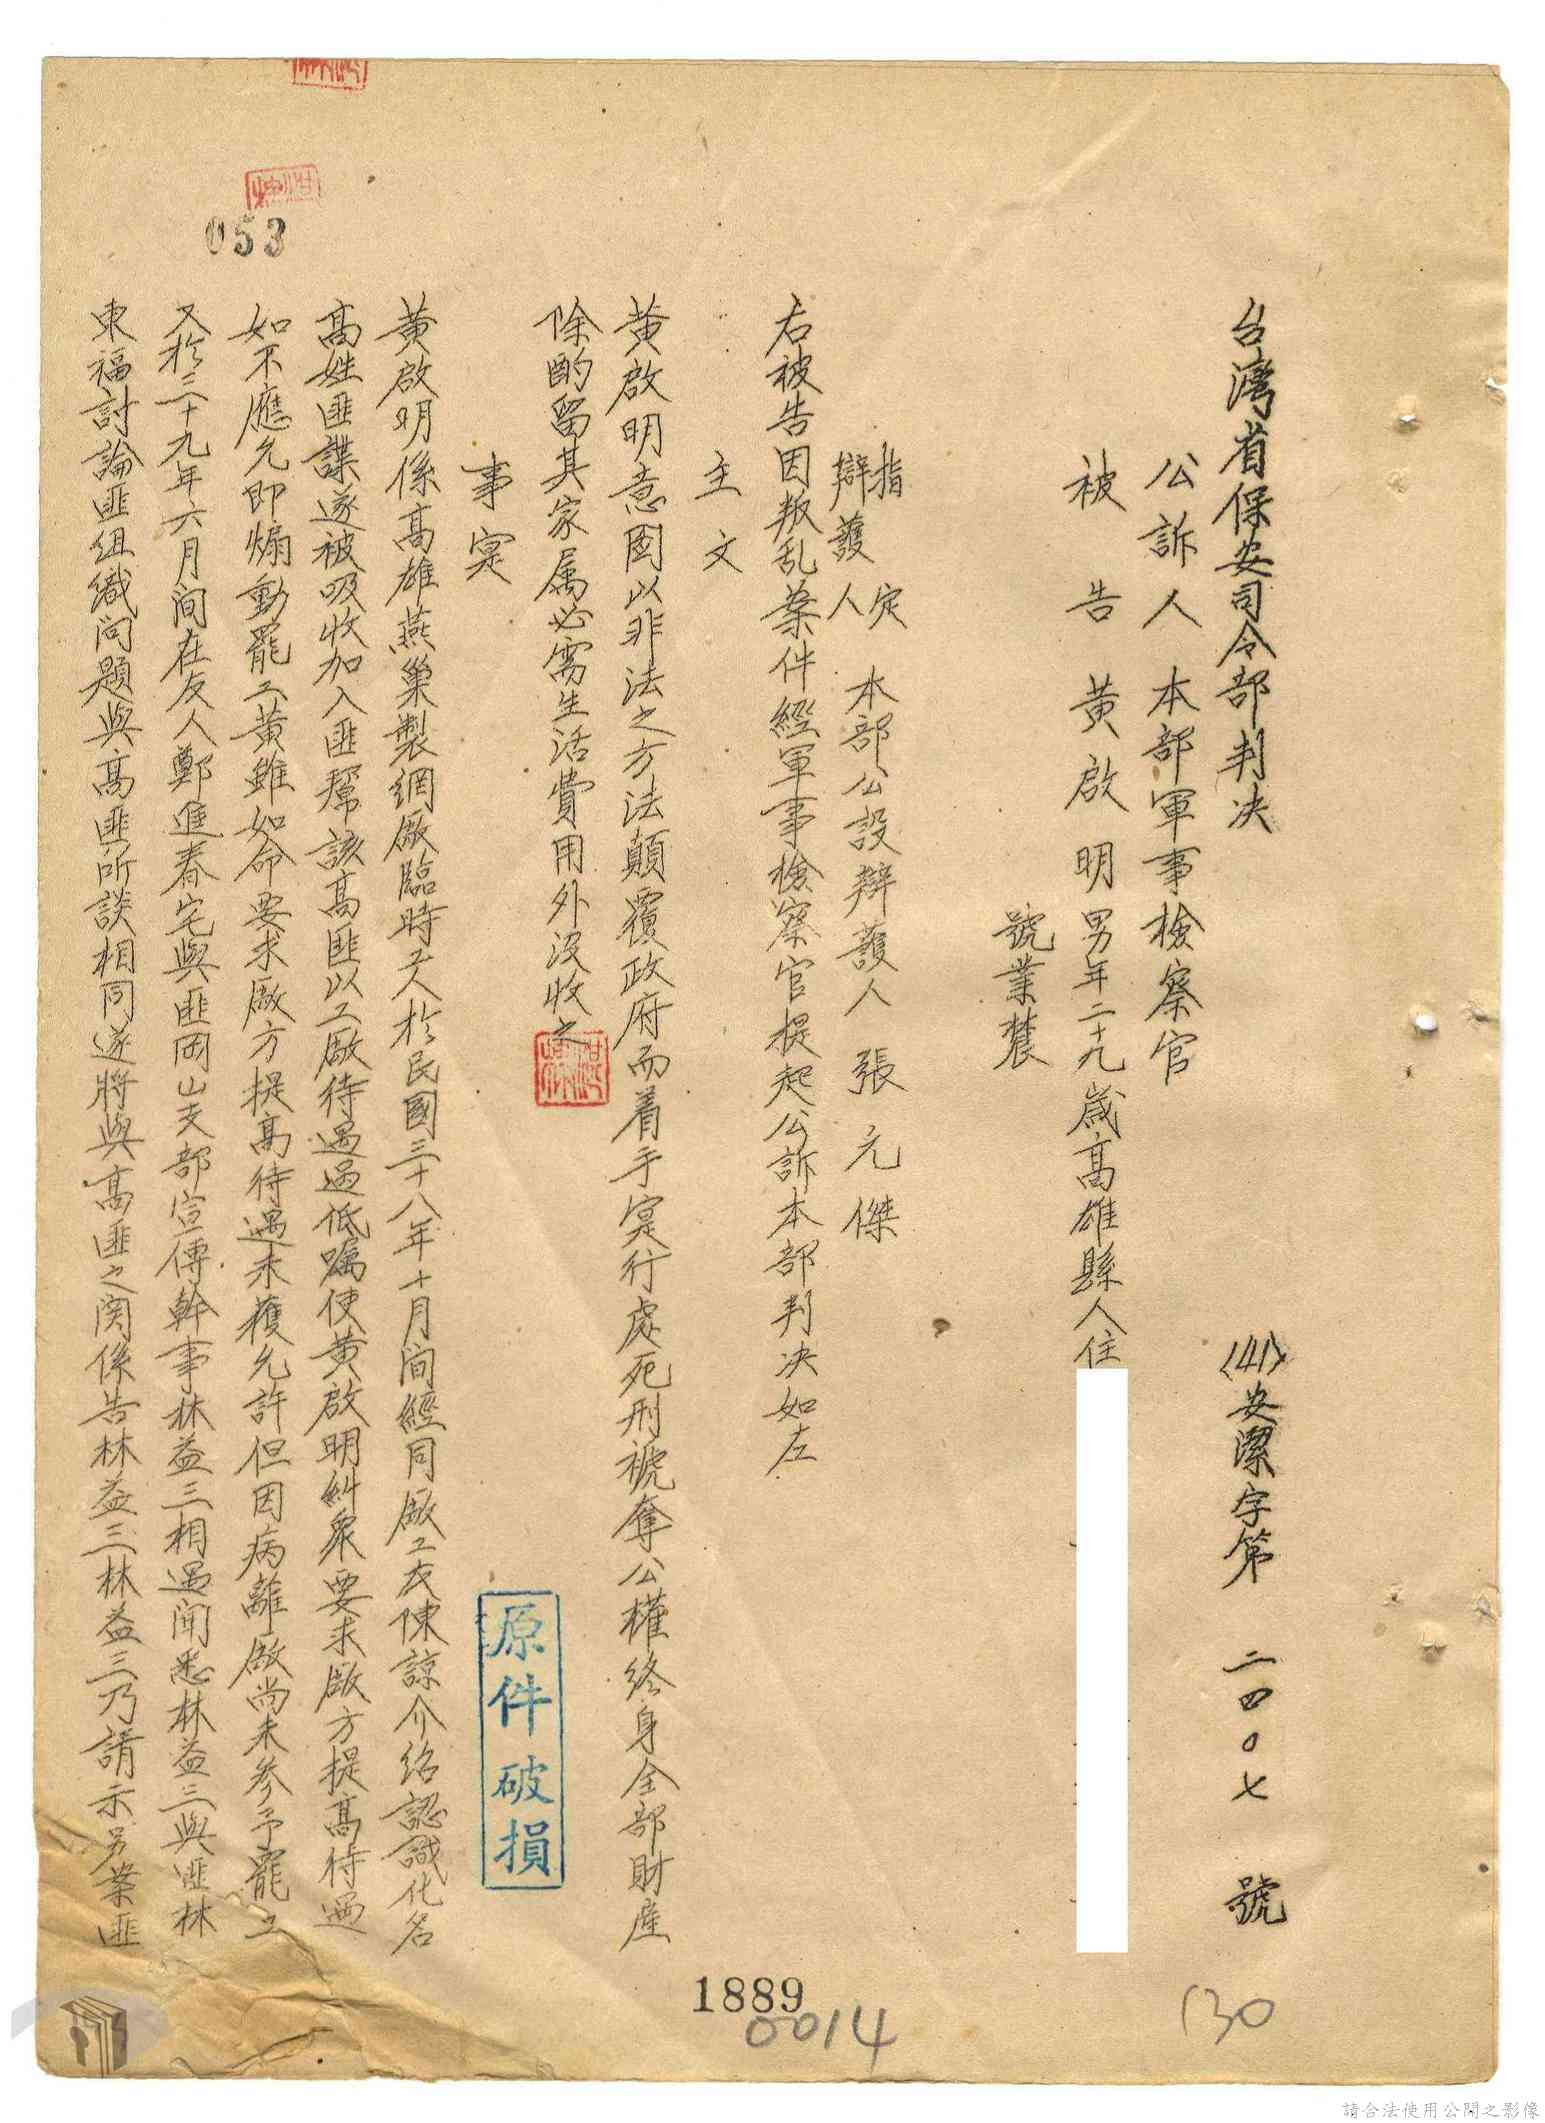 台灣省保安司令部判决
(41)安潔字第二四〇七號
公訴人 本部軍事檢察官
被告 黃啟明 男年二十九歲高雄縣人住
號業農
指定辯護人 本部公設辯護人 張元傑
右被告因叛乱案件經軍事檢察官提起公訴本部判决如左
主文
黃啟明意圖以非法之方法顛覆政府而着手实行處死刑褫奪公權終身全部財產
除酌留其家屬必需生活費用外没收之
事实
黃啟明係高雄燕巢製網厰臨時工人於民國三十八年十月间經同厰工友陳諒介紹認識化名
高姓匪諜遂被吸收加入匪幫該高匪以工厰待遇過低嘱使黃啟明糾衆要求厰方提高待遇
如不應允即煽動罷工黃雖如命要求厰方提高待遇未獲允許但因病離厰尚未参予罷工
又於三十九年六月间在友人鄭進春宅與匪岡山支部宣傳幹事林益三相遇闻悉林益三與匪林
東福討論匪组織问題與高匪所談相同遂將與高匪之関係告林益三林益三乃請示另案匪
原件破損
053
1889
0014
130
請合法使用公開之影像